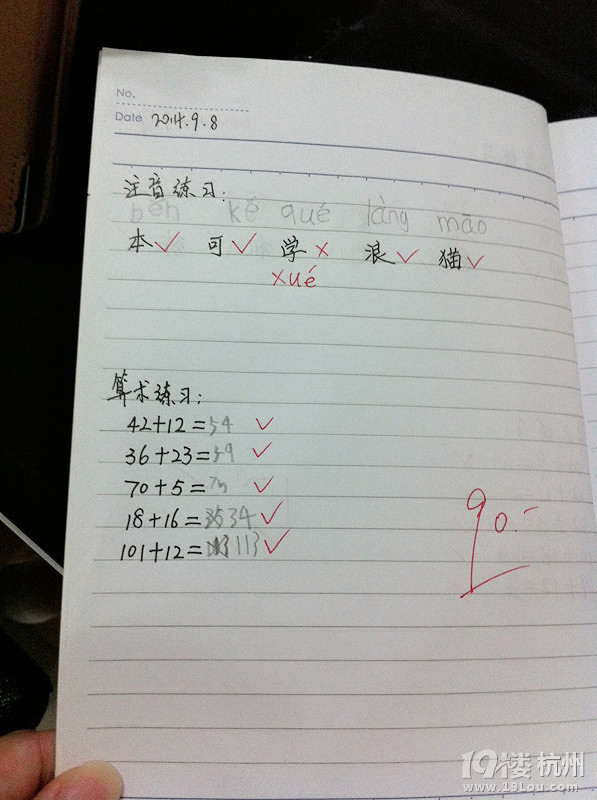 No.
Date 2014.9.8
注音练习:
běn kě qué làng māo
本✓ 可✓ 学✗ 浪✓ 猫✓
xué
算术练习:
42+12=54 ✓
36+23=59 ✓
70+5=75 ✓
18+16=34 ✓
101+12=113 ✓
90.-
19楼杭州
www.19lou.com